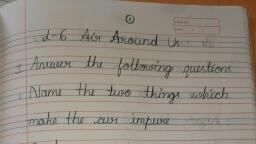 1
2-6 Air Around Us
I Answer the following questions
Name the two things which
make the air impure